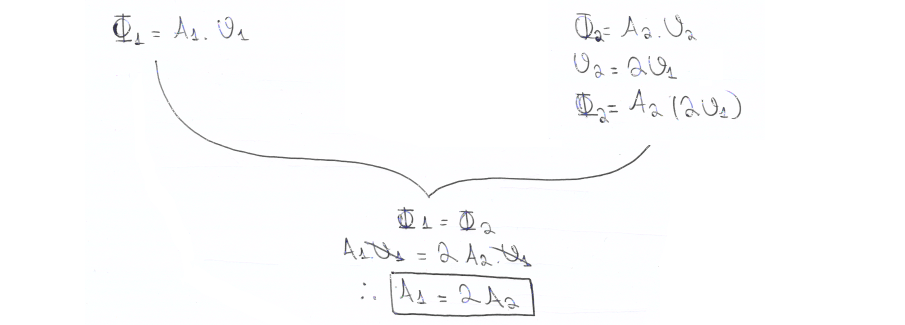 Φ₁ = A₁. υ₁
Φ₂= A₂. υ₂
υ₂ = 2υ₁
Φ₂= A₂ (2υ₁)
Φ₁ = Φ₂
A₁.υ₁ = 2 A₂.υ₁
∴ A₁ = 2 A₂